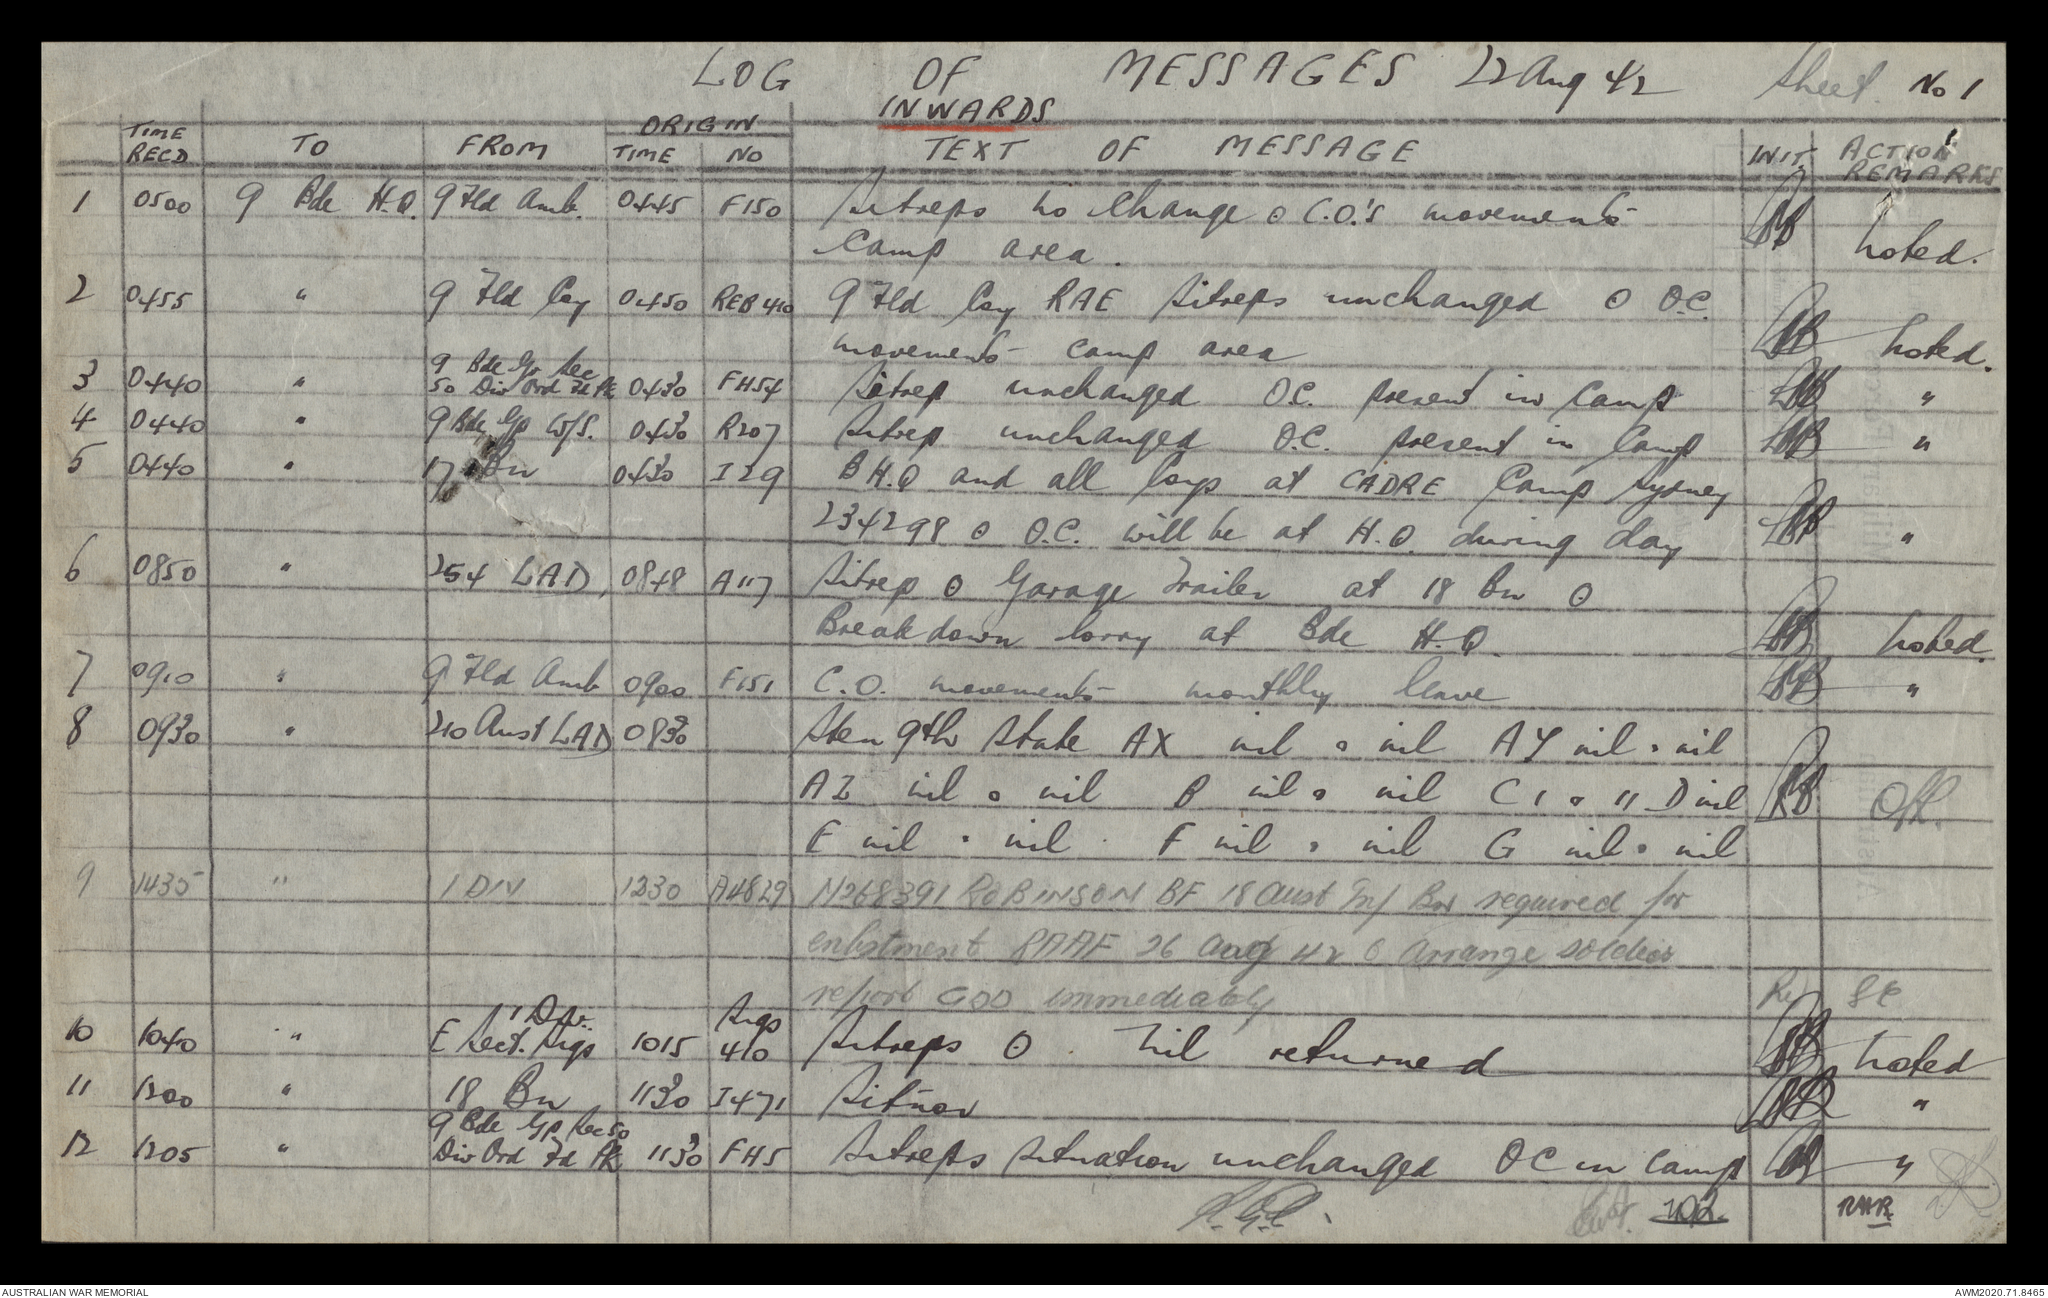 LOG OF MESSAGES 22 Aug 42 Sheet No 1
INWARDS
TIME RECD TO FROM ORIGIN TIME NO TEXT OF MESSAGE INIT. ACTION REMARKS
1 0500 9 Bde H.Q. 9 Fld Amb. 0445 F150 Sitreps no change o C.O.'s movements
camp area. noted.
2 0455 " 9 Fld Coy 0450 REB410 9 Fld Coy RAE Sitreps unchanged o O.C.
movements camp area noted.
9 Bde Gp Sec
3 0440 " 50 Div Ord Fd Pk 0430 FH54 Sitrep unchanged O.C. present in Camp "
4 0440 " 9 Bde Gp W/S. 0430 R207 Sitrep unchanged O.C. present in Camp "
5 0440 " 17 Bn 0430 I29 B H.Q and all Coys at CADRE Camp Sydney
234298 o O.C. will be at H.Q. during day "
6 0850 " 254 LAD, 0848 A117 Sitrep o Garage Trailer at 18 Bn o
Breakdown lorry at Bde H.Q. noted.
7 0910 " 9 Fld Amb 0900 F151 C.O. movements monthly leave "
8 0930 " 210 Aust LAD 0830 Strength State AX nil o nil AY nil o nil
AZ nil o nil B nil o nil C 1 o 11 D nil
E nil o nil F nil o nil G nil o nil
9 1435 " 1 DIV 1230 A4829 N268391 ROBINSON BF 18 Aust Inf Bn required for
enlistment RAAF 26 Aug 42 o Arrange soldier
report GDD immediately SC
1 Div. Sigs
10 1040 " E Sect. Sigs 1015 410 Sitreps o Nil returned noted
11 1200 " 18 Bn 1130 I471 Sitnor "
9 Bde Gp Sec 50
12 1205 " Div Ord Fd Pk 1130 FH5 Sitreps situation unchanged OC in camp "
102
RHR
AUSTRALIAN WAR MEMORIAL
AWM2020.71.8465